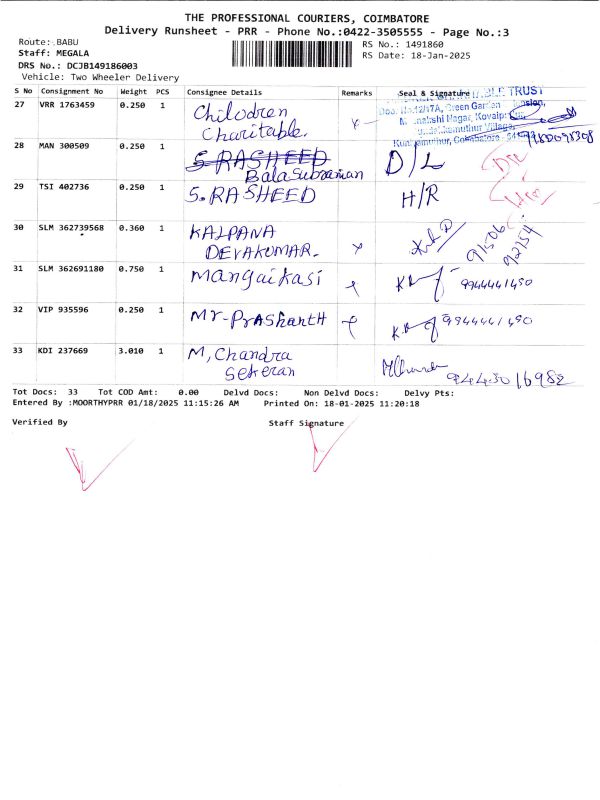 THE PROFESSIONAL COURIERS, COIMBATORE
Delivery Runsheet - PRR - Phone No.:0422-3505555 - Page No.:3
Route: BABU
RS No.: 1491860
Staff: MEGALA
RS Date: 18-Jan-2025
DRS No.: DCJB149186003
Vehicle: Two Wheeler Delivery
S No Consignment No Weight PCS Consignee Details Remarks Seal & Signature
27 VRR 1763459 0.250 1 Chilodren
Charitable.
TRUST
Green Garden
Nagar, Kovaipudur
Village,
Coimbatore
28 MAN 300509 0.250 1 S RASHEED D/L
BalaSubraman
29 TSI 402736 0.250 1 S. RASHEED H/R
30 SLM 362739568 0.360 1 KALPANA
DEVAKUMAR. 91506
92154
31 SLM 362691180 0.750 1 Mangaikasi 9944441490
32 VIP 935596 0.250 1 Mr-PrAShanth 9944441490
33 KDI 237669 3.010 1 M, Chandra
Sekeran 9443016982
Tot Docs: 33 Tot COD Amt: 0.00 Delvd Docs: Non Delvd Docs: Delvy Pts:
Entered By :MOORTHYPRR 01/18/2025 11:15:26 AM Printed On: 18-01-2025 11:20:18
Verified By Staff Signature